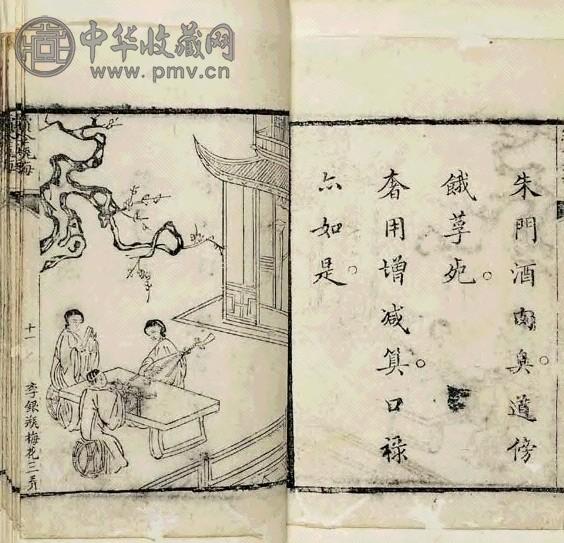 中华收藏网
www.pmv.cn
朱門酒肉臭。道傍
餓莩死。
奢用增減算。口祿
亦如是。
十一
李銀猴梅花三弄